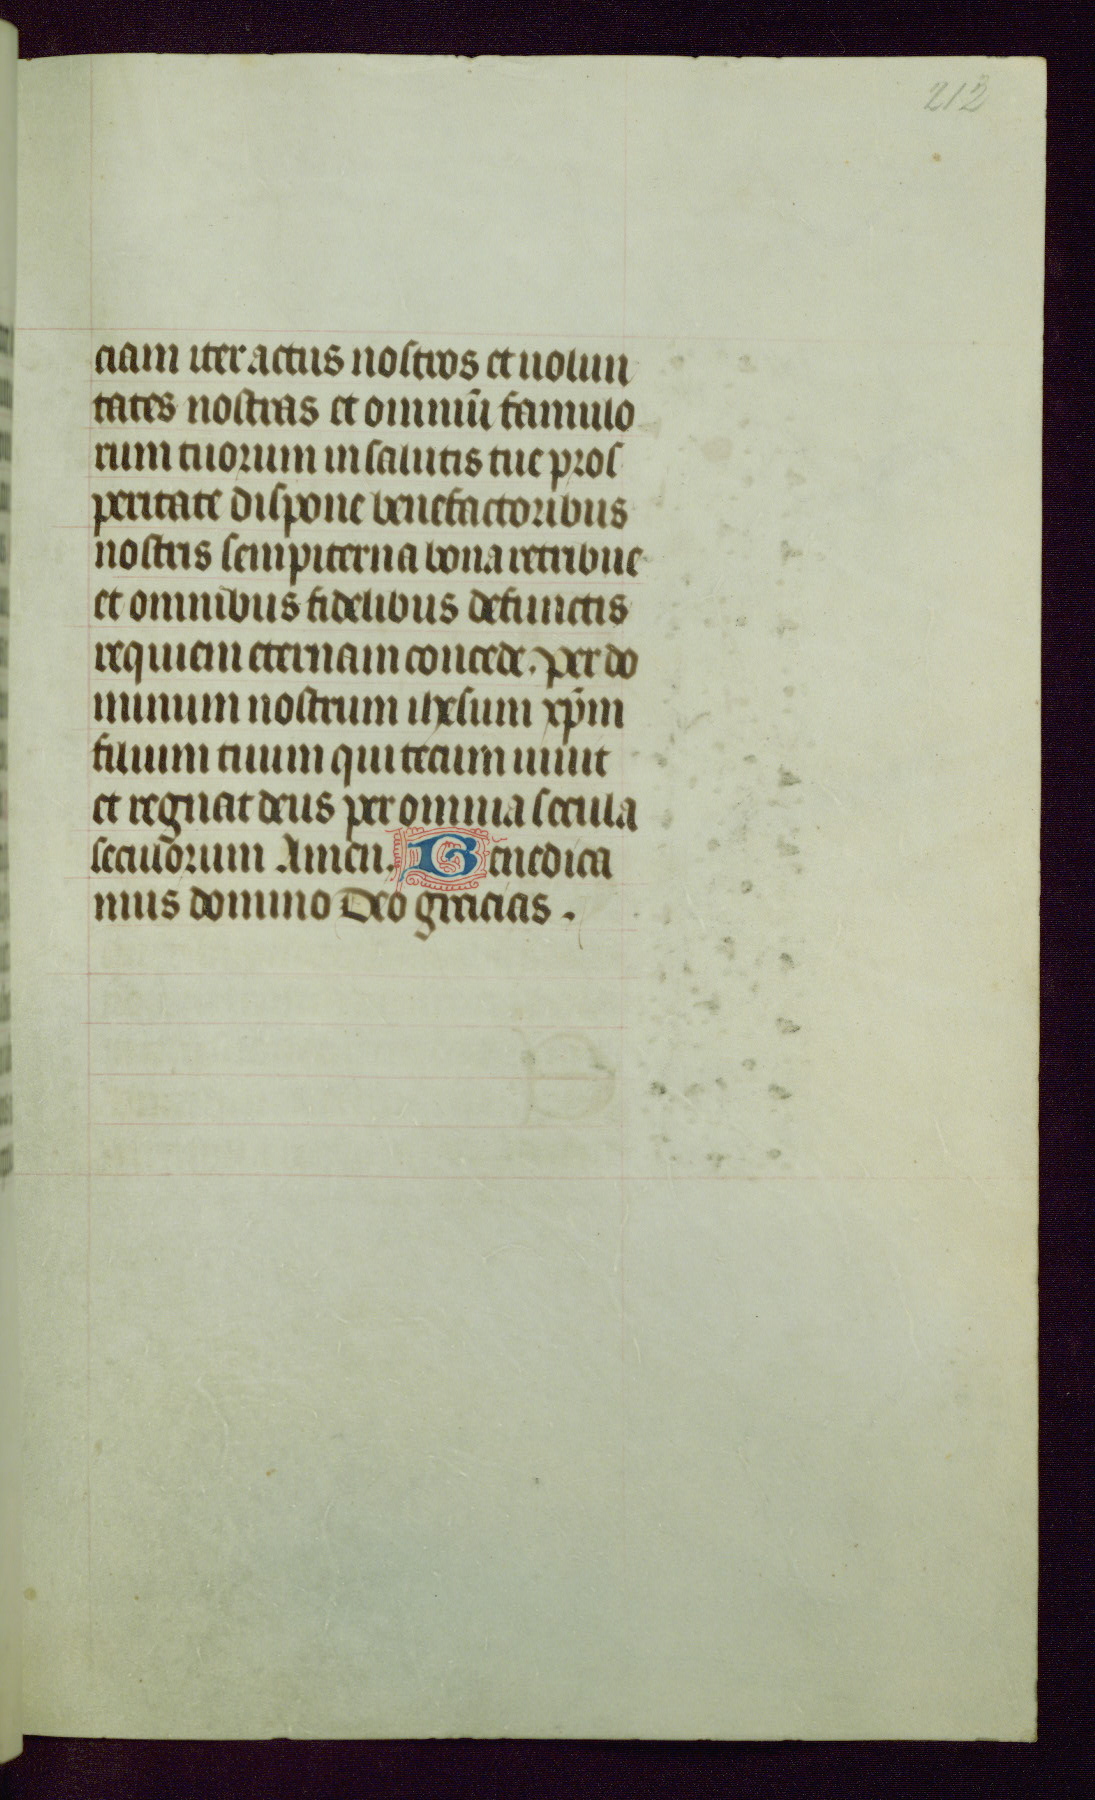 212
ciam iter actus nostros et uolun
tates nostras et omniū famulo
rum tuorum in salutis tue pros
peritate dispone benefactoribus
nostris sempiterna bona retribue
et omnibus fidelibus defunctis
requiem eternam concede. Per do
minum nostrum ihesum xp̄m
filium tuum qui tecum uiuit
et regnat deus per omnia secula
seculorum Amen. Benedica
mus domino Deo gracias .